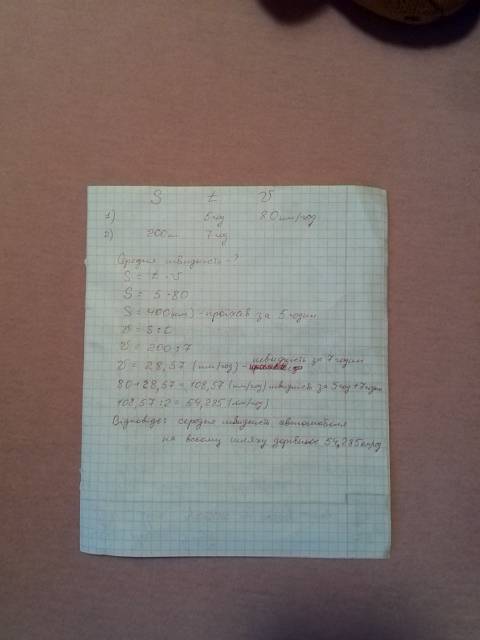 S t v
1) 5 год 80 км/год
2) 200 км 7 год
Середня швидкість - ?
S = t · v
S = 5 · 80
S = 400 (км) - проїхав за 5 годин
v = S : t
v = 200 : 7
v = 28,57 (км/год) - швидкість за 7 годин
80 + 28,57 = 108,57 (км/год) швидкість за 5 год + 7 годин
108,57 : 2 = 54,285 (км/год)
Відповідь: середня швидкість автомобіля
на всьому шляху дорівнює 54,285 км/год